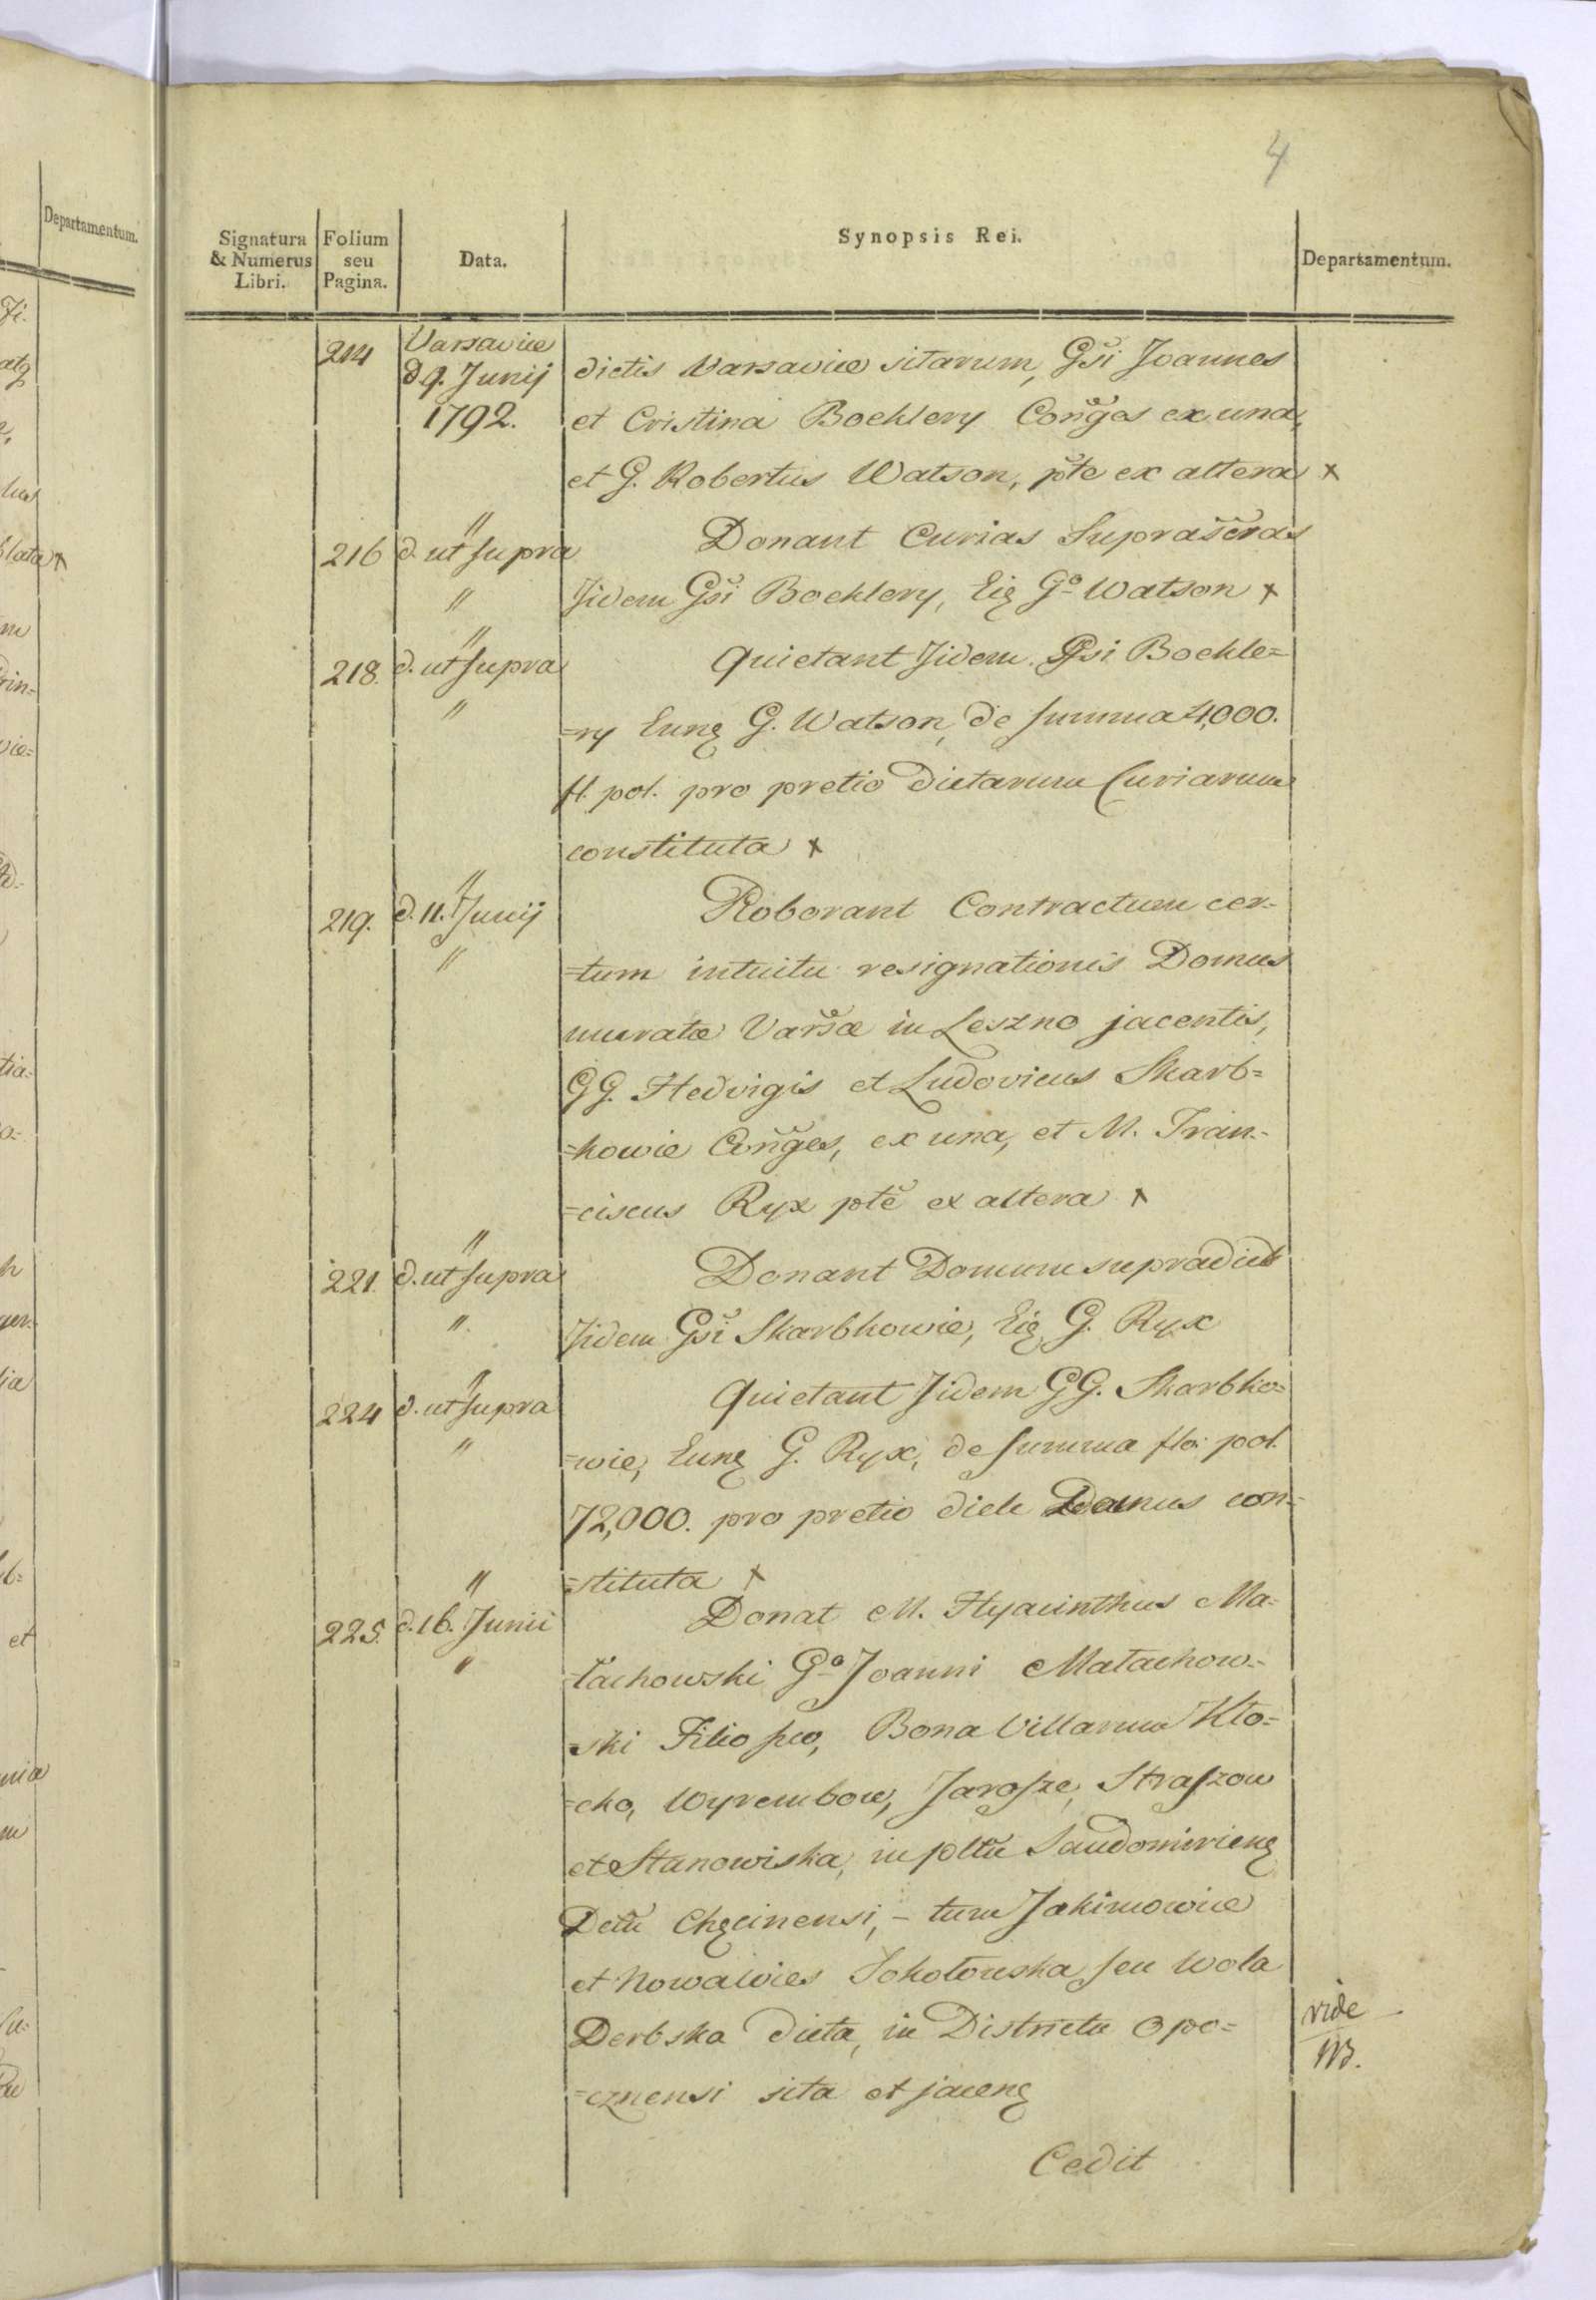 4
Signatura & Numerus Libri. Folium seu Pagina. Data. Synopsis Rei. Departamentum.
214 Varsaviæ
d 9. Junij dictis Varsaviæ sitarum, Gsi Joannes
1792. et Cristina Boeklery Conges ex una,
et G. Robertus Watson, pte ex altera x
"
216 d. ut supra Donant Curias Suprascras
" Jidem Gsi Boeklery, Eiq Go Watson x
"
218. d. ut supra Quietant Jidem Gsi Boekle=
" =ry Eunq G. Watson, de summa 4,000.
fl. pol. pro pretio dictarum Curiarum
constituta x
"
219. d. 11. Junij Roborant Contractum cer=
" =tum intuitu resignationis Domus
muratæ Varsæ in Leszno jacentis,
GG. Hedvigis et Ludovicus Skarb=
=kowie Conges, ex una, et M. Fran=
=ciscus Ryx pte ex altera x
"
221. d. ut supra Donant Domum supradict
" Jidem Gsi Skarbkowie, Eiq G. Ryx
"
224 d. ut supra Quietant Jidem GG. Skarbko=
" =wie, Eunq G. Ryx, de summa flo: pol.
72,000. pro pretio dicte Domus con=
" =stituta x
225. d. 16. Junii Donat M. Hyacinthus Ma=
" =łachowski Go Joanni Małachow=
ski Filio suo, Bona Villarum Kło=
=cko, Wyrembow, Jarosze, Straszow
et Stanowiska, in pltu Sandomirienq
Dctu Chęcinensi, - tum Jakimowice
et Nowawies Sokołowska seu Wola
Derbska dicta, in Districtu Opo= vide
=cznensi sita et jacenq
Cedit